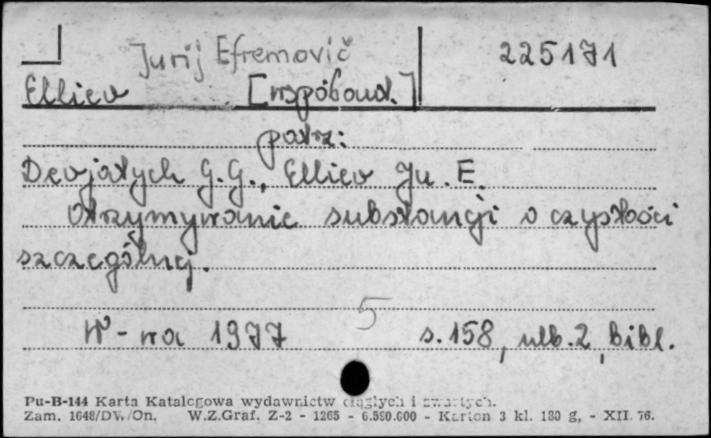 Jurij Efremovič 225171
Elliev [współaut.]
patrz:
Devjatych G.G., Elliev Ju. E.
Otrzymywanie substancji o czystości
szczególnej.
W-wa 1977 5 s. 158, nlb. 2, bibl.
Pu-B-144 Karta Katalogowa wydawnictw ciągłych i zwartych.
Zam. 1648/DV./On. W.Z.Graf. Z-2 - 1265 - 6.590.000 - Karton 3 kl. 180 g, - XII. 76.